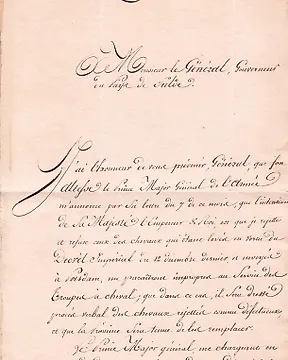 A Monsieur le Général, Gouverneur
du Pays de Fulde.
J'ai l'honneur de vous prévenir, Général, que son
Altesse le Prince Major Général de l'armée
m'annonce par Sa lettre du 7 de ce mois, que l'intention
de Sa Majesté l'Empereur & Roi est que je rejette
et refuse ceux des chevaux qui étant levés en vertu du
Décret Impérial du 12 décembre dernier et envoyés
à Potsdam, me paraîtront impropres au Service des
Troupes à cheval; que dans ce cas, il sera dressé
procès verbal des chevaux rejettés comme défectueux
et que la Province sera tenue de les remplacer.
Le Prince Major général me chargeant en